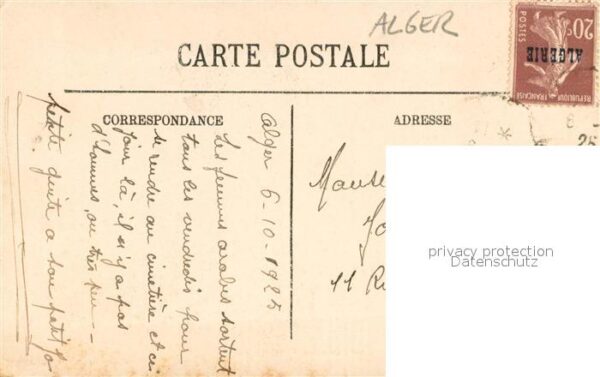 ALGER
CARTE POSTALE
20c
POSTES
ALGERIE
REPUBLIQUE FRANÇAISE
CORRESPONDANCE
ADRESSE
25
Alger 6-10-1925
Les femmes arabes sortent
tous les vendredis pour
se rendre au cimetière et ce
jour là, il n'y a pas
d'hommes, ou très peu -
petite a son petit Jo
11 R
privacy protection
Datenschutz